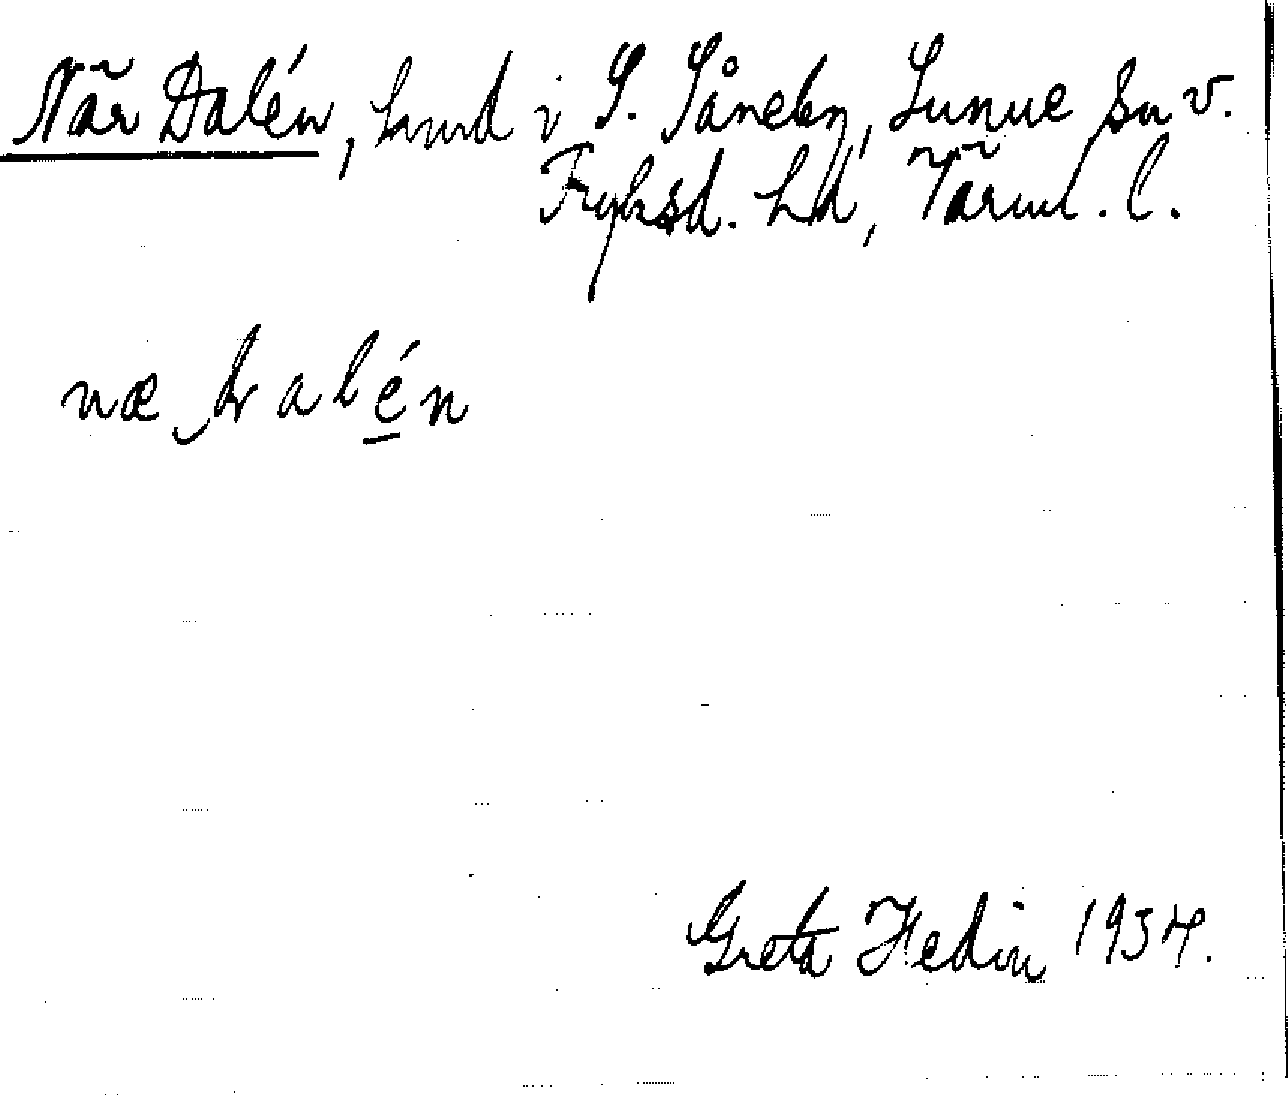 När Dalén, hmd i S. Såneby, Lunne sn v.
Fryksd. hd, Värml. l.
næ dalén
Greta Hedin 1934.